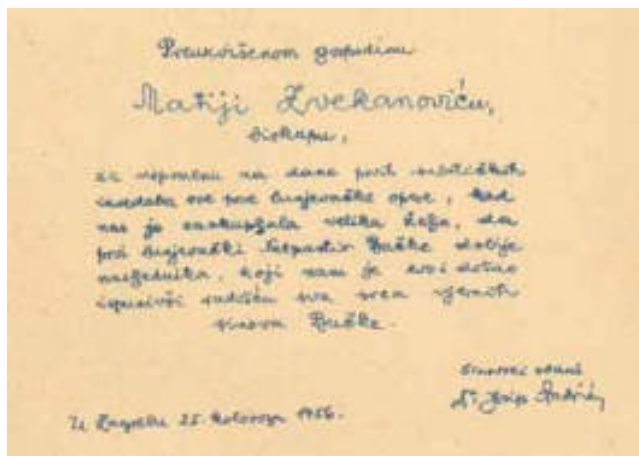 Preuzvišenom gospodinu
Matiji Zvekanoviću,
biskupu,
za uspomenu na dane prvih subotičkih
izvedaba ove prve bunjevačke opere, kad
nas je zaokupljala velika želja, da
prvi bunjevački natpastir Bačke dobije
nasljednika, koji nam je evo došao
ispunivši radošću sva srca vjernih
sinova Bačke.
sinovski odani
Dr Josip Andrić
U Zagrebu 25. kolovoza 1956.